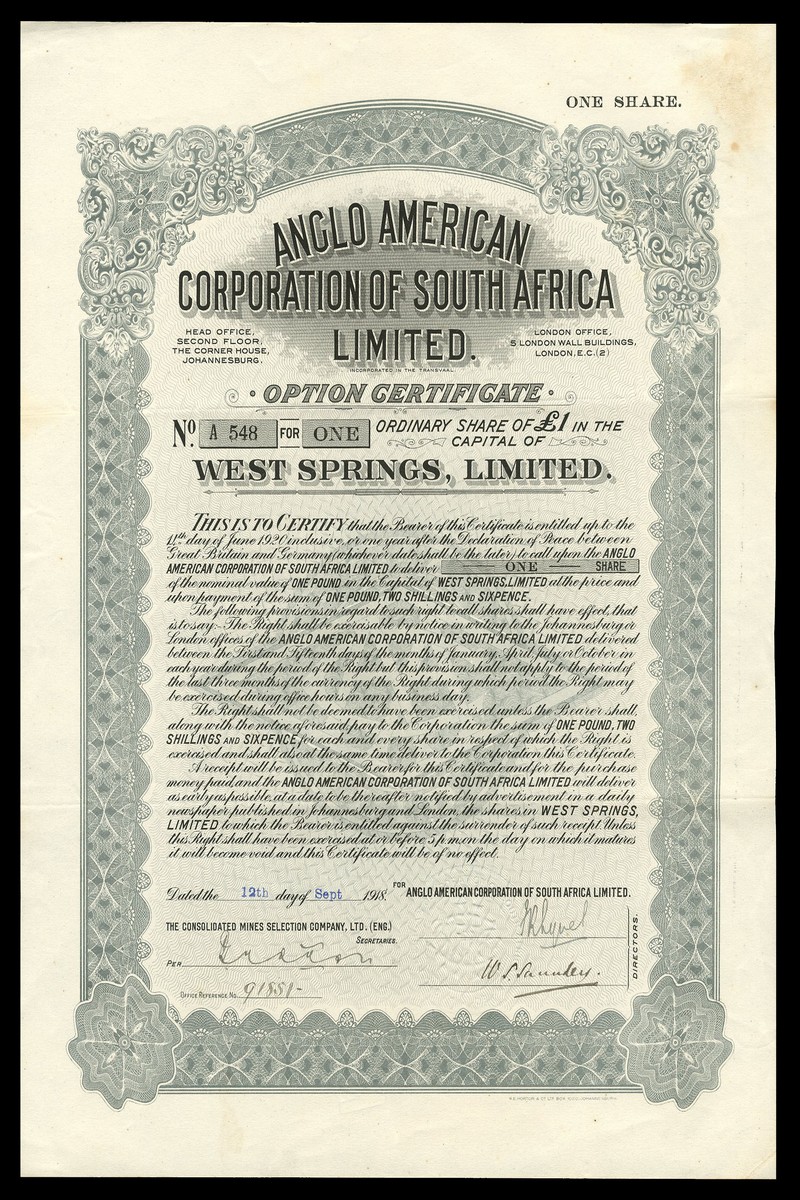 ONE SHARE.
ANGLO AMERICAN
CORPORATION OF SOUTH AFRICA
LIMITED.
INCORPORATED IN THE TRANSVAAL.
HEAD OFFICE,
SECOND FLOOR,
THE CORNER HOUSE,
JOHANNESBURG.
LONDON OFFICE,
5 LONDON WALL BUILDINGS,
LONDON, E.C.(2)
· OPTION CERTIFICATE ·
No. A 548 FOR ONE ORDINARY SHARE OF £1 IN THE
CAPITAL OF
WEST SPRINGS, LIMITED.
THIS IS TO CERTIFY that the Bearer of this Certificate is entitled up to the
11th day of June 1920 inclusive, or one year after the Declaration of Peace between
Great Britain and Germany (whichever date shall be the later) to call upon the ANGLO
AMERICAN CORPORATION OF SOUTH AFRICA LIMITED to deliver ONE SHARE
of the nominal value of ONE POUND in the Capital of WEST SPRINGS, LIMITED at the price and
upon payment of the sum of ONE POUND, TWO SHILLINGS AND SIXPENCE.
The following provisions in regard to such right to call shares shall have effect, that
is to say:- The Right shall be exercisable by notice in writing to the Johannesburg or
London offices of the ANGLO AMERICAN CORPORATION OF SOUTH AFRICA LIMITED delivered
between the First and Fifteenth days of the months of January, April, July or October in
each year during the period of the Right but this provision shall not apply to the period of
the last three months of the currency of the Right during which period the Right may
be exercised during office hours on any business day.
The Right shall not be deemed to have been exercised unless the Bearer shall,
along with the notice aforesaid, pay to the Corporation the sum of ONE POUND, TWO
SHILLINGS AND SIXPENCE, for each and every share in respect of which the Right is
exercised and shall also at the same time deliver to the Corporation this Certificate.
A receipt will be issued to the Bearer for this Certificate and for the purchase
money paid, and the ANGLO AMERICAN CORPORATION OF SOUTH AFRICA LIMITED will deliver
as early as possible, at a date to be thereafter notified by advertisement in a daily
newspaper published in Johannesburg and London, the shares in WEST SPRINGS,
LIMITED to which the Bearer is entitled against the surrender of such receipt. Unless
this Right shall have been exercised at or before 5 p.m. on the day on which it matures
it will become void and this Certificate will be of no effect.
Dated the 12th day of Sept 1918. FOR ANGLO AMERICAN CORPORATION OF SOUTH AFRICA LIMITED.
THE CONSOLIDATED MINES SELECTION COMPANY, LTD. (ENG.)
SECRETARIES.
PER
DIRECTORS.
W. S. Saunders.
OFFICE REFERENCE No. 91851-